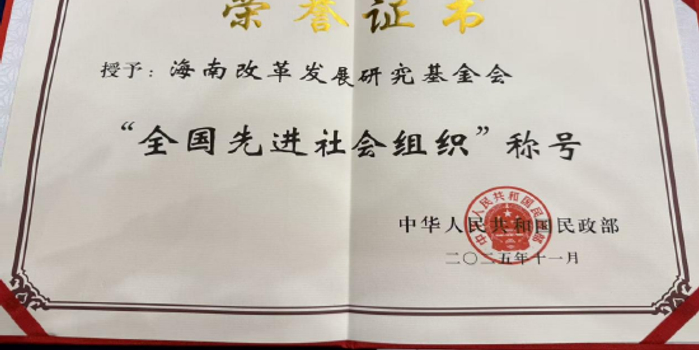 荣誉证书
授予：海南改革发展研究基金会
“全国先进社会组织”称号
中华人民共和国民政部
二〇二五年十一月
中华人民共和国民政部